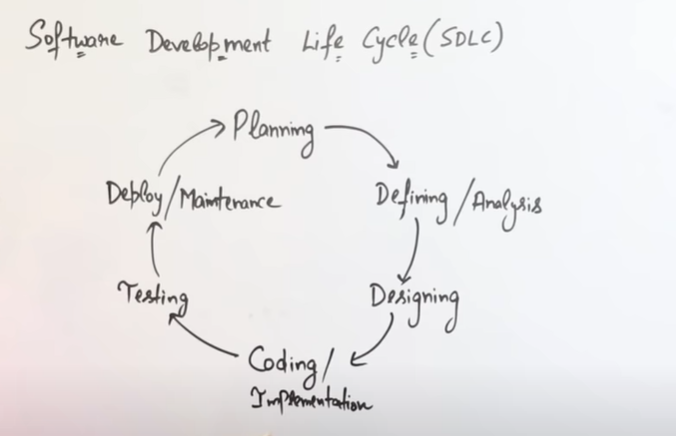 Software Development Life Cycle (SDLC)
Planning
Defining / Analysis
Designing
Coding /
Implementation
Testing
Deploy / Maintenance